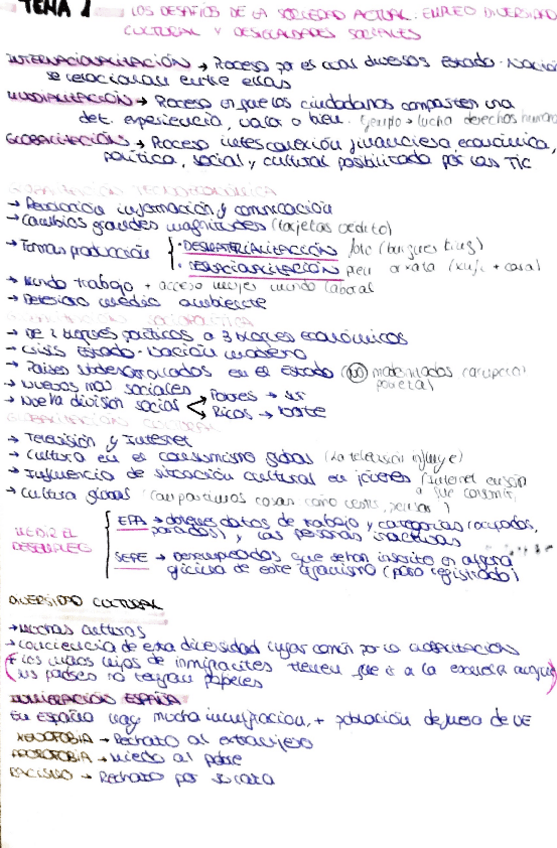 TEMA 1 LOS DESAFÍOS DE LA SOCIEDAD ACTUAL: EMPLEO DIVERSIDAD
CULTURAL Y DESIGUALDADES SOCIALES
INTERNACIONALIZACIÓN → Proceso por el cual diversos Estado-Nación
se relacionan entre ellas
MUNDIALIZACIÓN → Proceso en que los ciudadanos comparten una
det. experiencia, valor o bien. Ejemplo → lucha derechos humanos
GLOBALIZACIÓN → Proceso interconexión financiera económica,
política, social y cultural posibilitada por las TIC
GLOBALIZACIÓN TECNOECONÓMICA
→ Revolución información y comunicación
→ Cambios grandes magnitudes (tarjetas crédito)
→ Formas producción
· DESMATERIALIZACIÓN
· DESLOCALIZACIÓN
→ Mundo trabajo + acceso mujer mundo laboral
→ Deterioro medio ambiente
GLOBALIZACIÓN SOCIOPOLÍTICA
→ De 2 bloques políticos a 3 bloques económicos
→ Crisis Estado-Nación moderno
→ Países subdesarrollados en el Estado (no)
→ Nuevas sociales
→ Nueva división social
Pobres → sur
Ricos → norte
GLOBALIZACIÓN CULTURAL
→ Televisión y Internet
→ Cultura en el consumismo global (La televisión influye)
→ Influencia de situación cultural en jóvenes (Internet
a que consumir)
→ Cultura global (compartimos cosas como
MEDIR EL
DESEMPLEO
EPA → datos de trabajo y categorías (ocupados,
parados) y las personas inactivas
SEPE → Desempleados que están inscrito en alguna
oficina de este organismo (paro registrado)
DIVERSIDAD CULTURAL
→ Muchas culturas
→ Conciencia de esta diversidad lugar común por la GLOBALIZACIÓN
hijos de inmigrantes tienen que ir a la escuela aunque
sus padres no tengan papeles
INMIGRACIÓN ESPAÑA
En España hay mucha inmigración, + población de UE
XENOFOBIA → Rechazo al extranjero
APOROFOBIA → Miedo al pobre
RACISMO → Rechazo por su raza